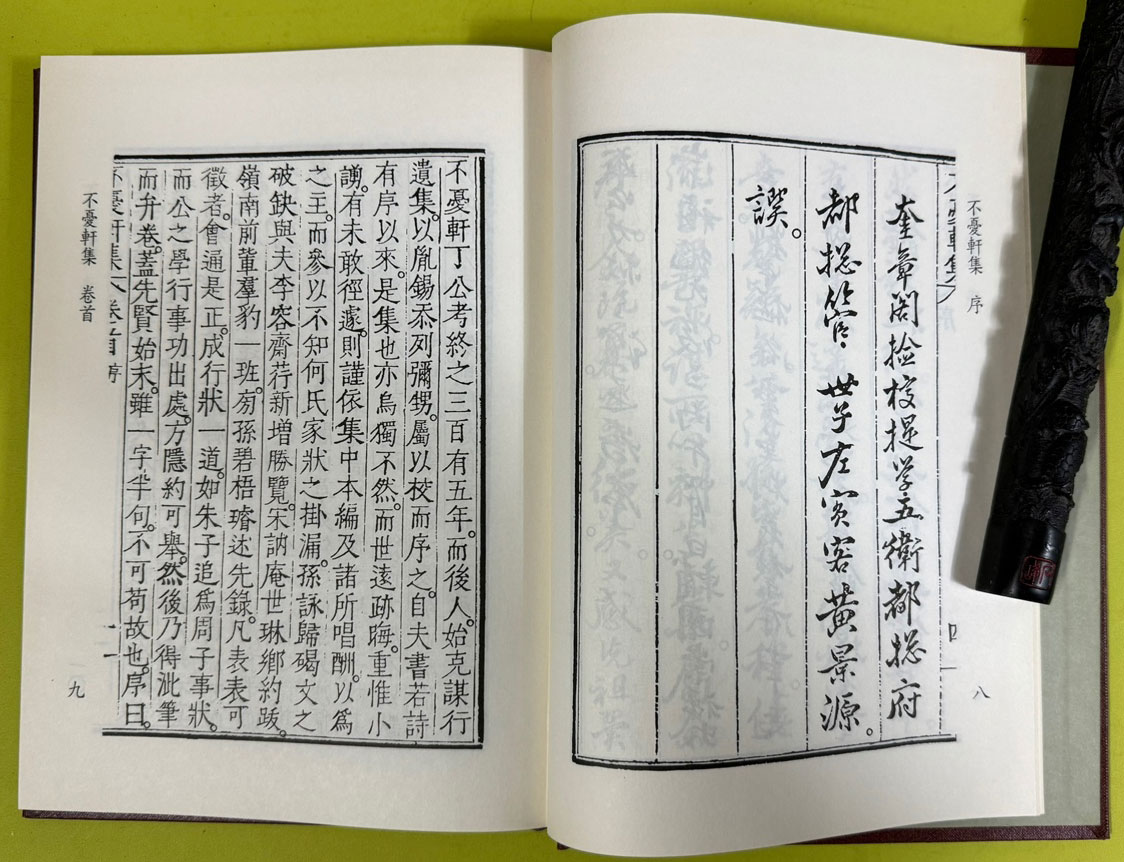 不憂軒集 序
八
四
奎章閣撿校提學五衛都捴府
都捴管世子左賓客黃景源。
譔。
不憂軒丁公考終之三百有五年。而後人。始克謀行
遺集。以胤錫忝列彌甥。屬以校而序之。自夫書若詩
有序以來。是集也亦烏獨不然。而世遠跡晦。重惟小
謭。有未敢徑遽。則謹依集中本編及諸所唱酬。以爲
之主。而參以不知何氏家狀之掛漏。孫詠歸碣文之
破缺與夫李容齋荇新增勝覽。宋訥庵世琳鄉約跋。
嶺南前輩羣豹一班。旁孫碧梧璿述先錄。凡表表可
徵者。會通是正。成行狀一道。如朱子追爲周子事狀。
而公之學行事功出處。方隱約可舉。然後乃得泚筆
而弁卷。蓋先賢始末。雖一字半句。不可苟故也。序曰。
不憂軒集 卷之首 序
不憂軒集 卷首
九